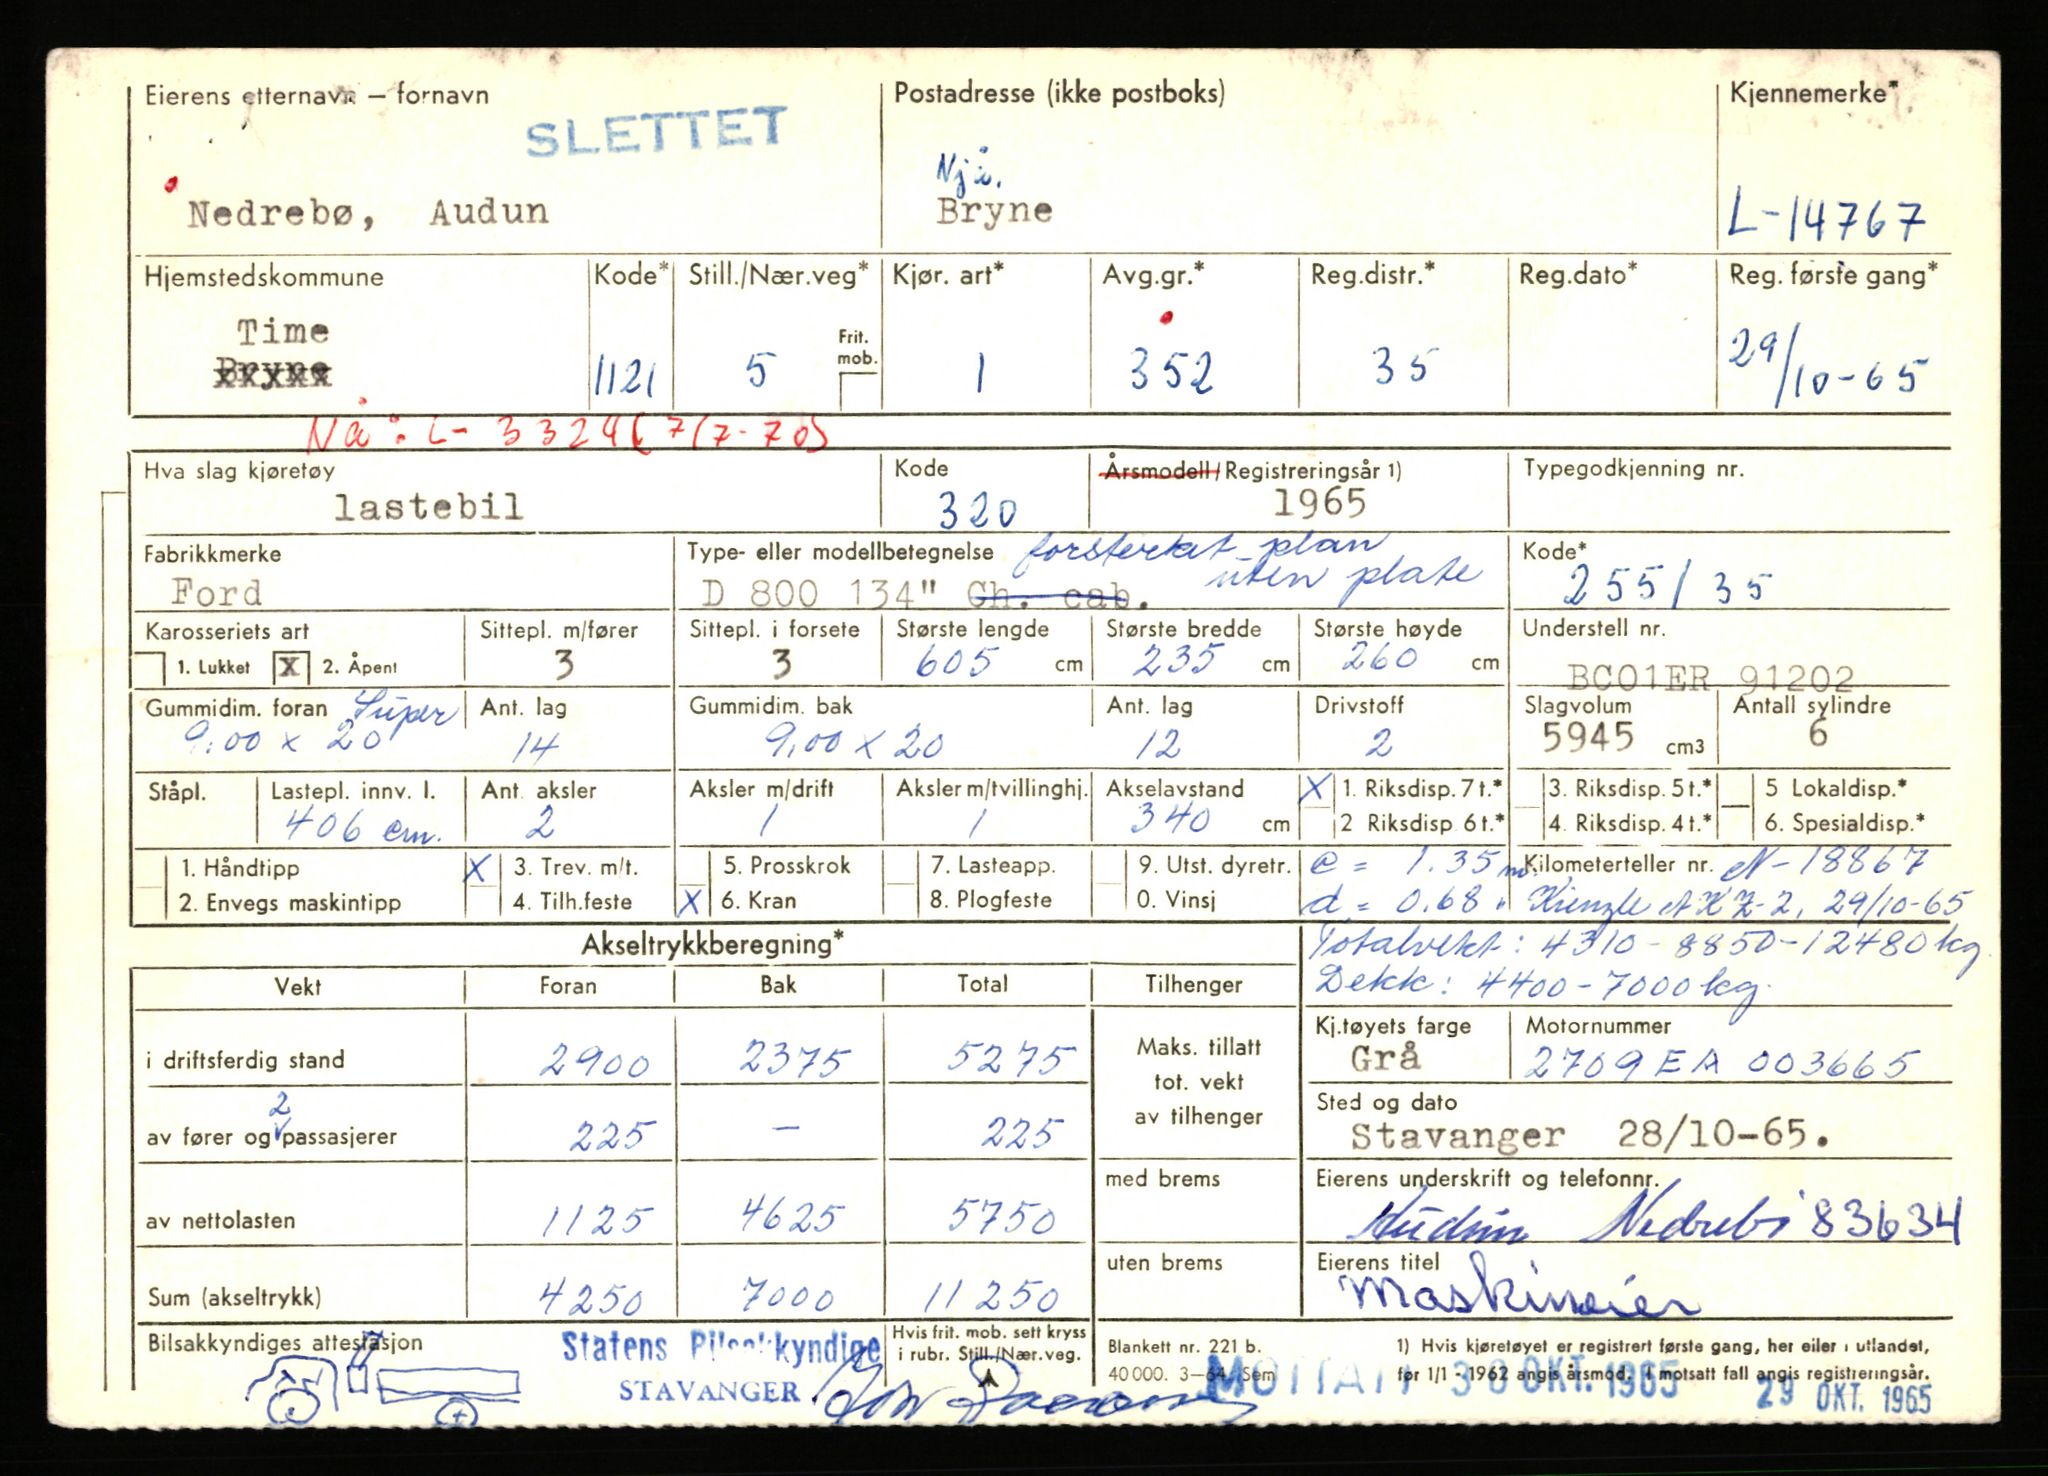 Eierens etternavn – fornavn
SLETTET
Nedrebø, Audun
Postadresse (ikke postboks)
Njå.
Bryne
Kjennemerke*
L-14767
Hjemstedskommune
Time
Bryne
Kode*
1121
Still./Nær.veg*
5
Frit.
mob.
Kjør. art*
1
Avg.gr.*
352
Reg.distr.*
35
Reg.dato*
Reg. første gang*
29/10-65
Nå: L- 3324 (7/7-70)
Hva slag kjøretøy
lastebil
Kode
320
Årsmodell/Registreringsår 1)
1965
Typegodkjenning nr.
Fabrikkmerke
Ford
Type- eller modellbetegnelse
forsterket plan
uten plate
D 800 134" Ch. cab.
Kode*
255/35
Karosseriets art
1. Lukket X 2. Åpent
Sittepl. m/fører
3
Sittepl. i forsete
3
Største lengde
605 cm
Største bredde
235 cm
Største høyde
260 cm
Understell nr.
BC01ER 91202
Gummidim. foran Super
9.00 x 20
Ant. lag
14
Gummidim. bak
9,00 x 20
Ant. lag
12
Drivstoff
2
Slagvolum
5945 cm3
Antall sylindre
6
Ståpl.
Lastepl. innv. l.
406 cm.
Ant. aksler
2
Aksler m/drift
1
Aksler m/tvillinghj.
1
Akselavstand
340 cm
X 1. Riksdisp. 7 t.*
2 Riksdisp. 6 t.*
3. Riksdisp. 5 t.*
4. Riksdisp. 4 t.*
5 Lokaldisp.*
6. Spesialdisp.*
1. Håndtipp
2. Envegs maskintipp
X 3. Trev. m/t.
4. Tilh.feste
5. Prosskrok
X 6. Kran
7. Lasteapp.
8. Plogfeste
9. Utst. dyretr.
0. Vinsj
c = 1.35 m.
d = 0.68 "
Kilometerteller nr. N-18867
Kienzle 29/10-65
Akseltrykkberegning*
Totalvekt: 4310-8850-12480 kg
Dekk: 4400-7000 kg.
Vekt
Foran
Bak
Total
Tilhenger
i driftsferdig stand
2900
2375
5275
Maks. tillatt
tot. vekt
av tilhenger
2
av fører og passasjerer
225
–
225
av nettolasten
1125
4625
5750
med brems
Sum (akseltrykk)
4250
7000
11250
uten brems
Kj.tøyets farge
Grå
Motornummer
2709 EA 003665
Sted og dato
Stavanger 28/10-65.
Eierens underskrift og telefonnr.
Audun Nedrebø 83634
Eierens titel
Maskineier
Bilsakkyndiges attestasjon
Statens Bilsakkyndige
STAVANGER
Hvis frit. mob. sett kryss
i rubr. Still./Nær.veg.
Blankett nr. 221 b.
40 000. 3–64. Sem
1) Hvis kjøretøyet er registrert første gang, her eller i utlandet,
før 1/1 - 1962 angis årsmod. I motsatt fall angis registreringsår.
MOTTATT 30 OKT. 1965
29 OKT. 1965